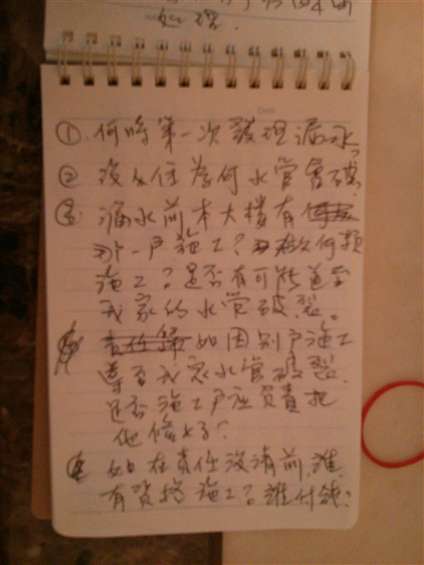 處理.
Date
① 何時第一次發現漏水?
② 沒人住為何水管會破?
③ 漏水前本大樓有
那一戶施工? 做何類
施工? 是否有可能造成
我家的水管破裂。
④ 如因別戶施工
導至我家水管破裂.
是否施工戶應負責把
他修好?
⑤ 如在責任沒清前.誰
有資格施工? 誰付錢?